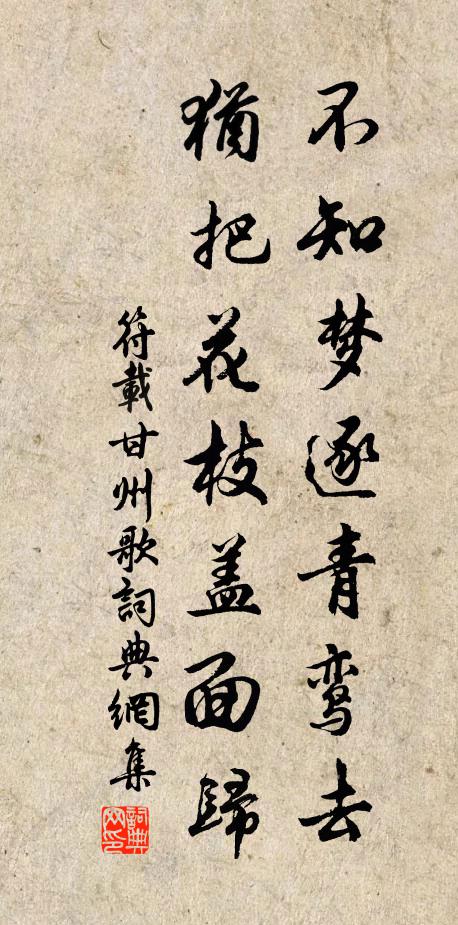 不知梦逐青鸾去
猶把花枝盖面歸
符載甘州歌詞典網集
詞典网印